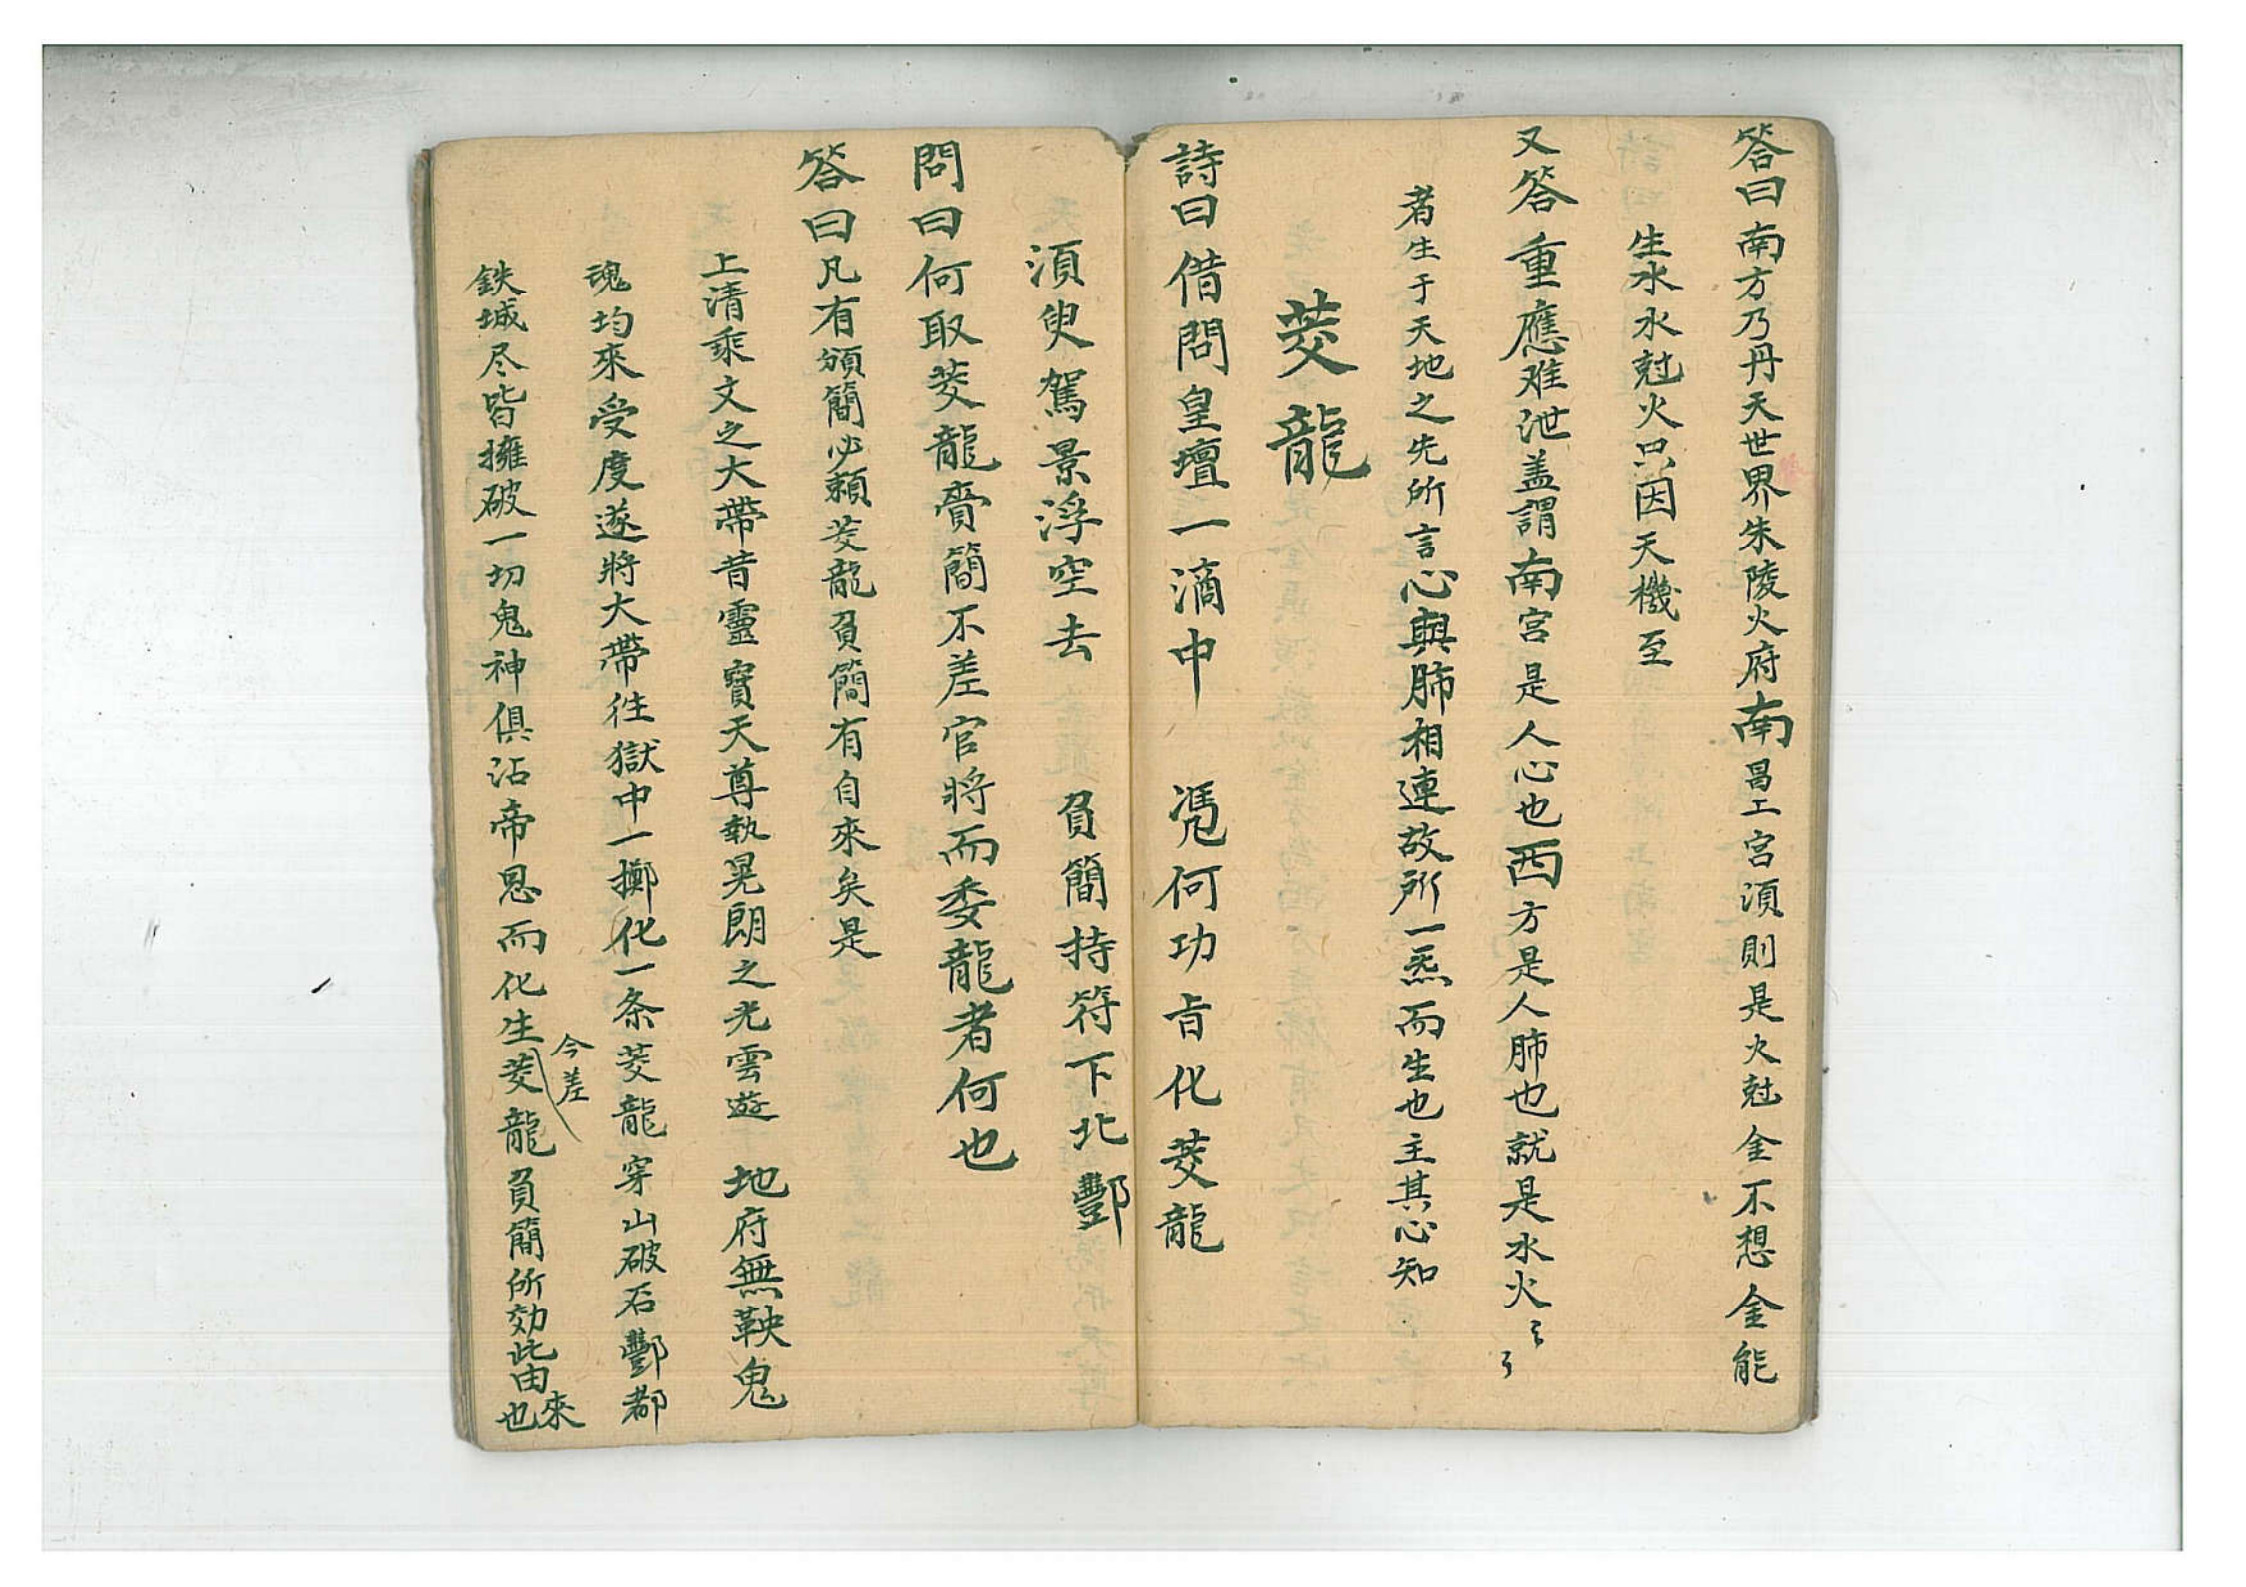 答曰南方乃丹天世界朱陵火府南昌工宮湏則是火尅金不想金能
生水水尅火只因天機至
又答重應难泄盖謂南宮是人心也西方是人肺也就是水火
者生于天地之先所言心與肺相連故所一炁而生也主其心知
茭龍
詩曰借問皇壇一滴中 凴何功旨化茭龍
湏臾駕景浮空去 負簡持符下北酆
問曰何取茭龍賫簡不差官將而委龍者何也
答曰凡有頒簡必賴茭龍負簡有自來矣是
上清乘文之大帶昔靈寶天尊執晃朗之光雲遊 地府無鞅鬼
魂均來受度遂將大帶往獄中一擲化一条茭龍穿山破石酆都
鉄城尽皆擁破一切鬼神俱沾帝恩而化生今差茭龍負簡所効此由來也